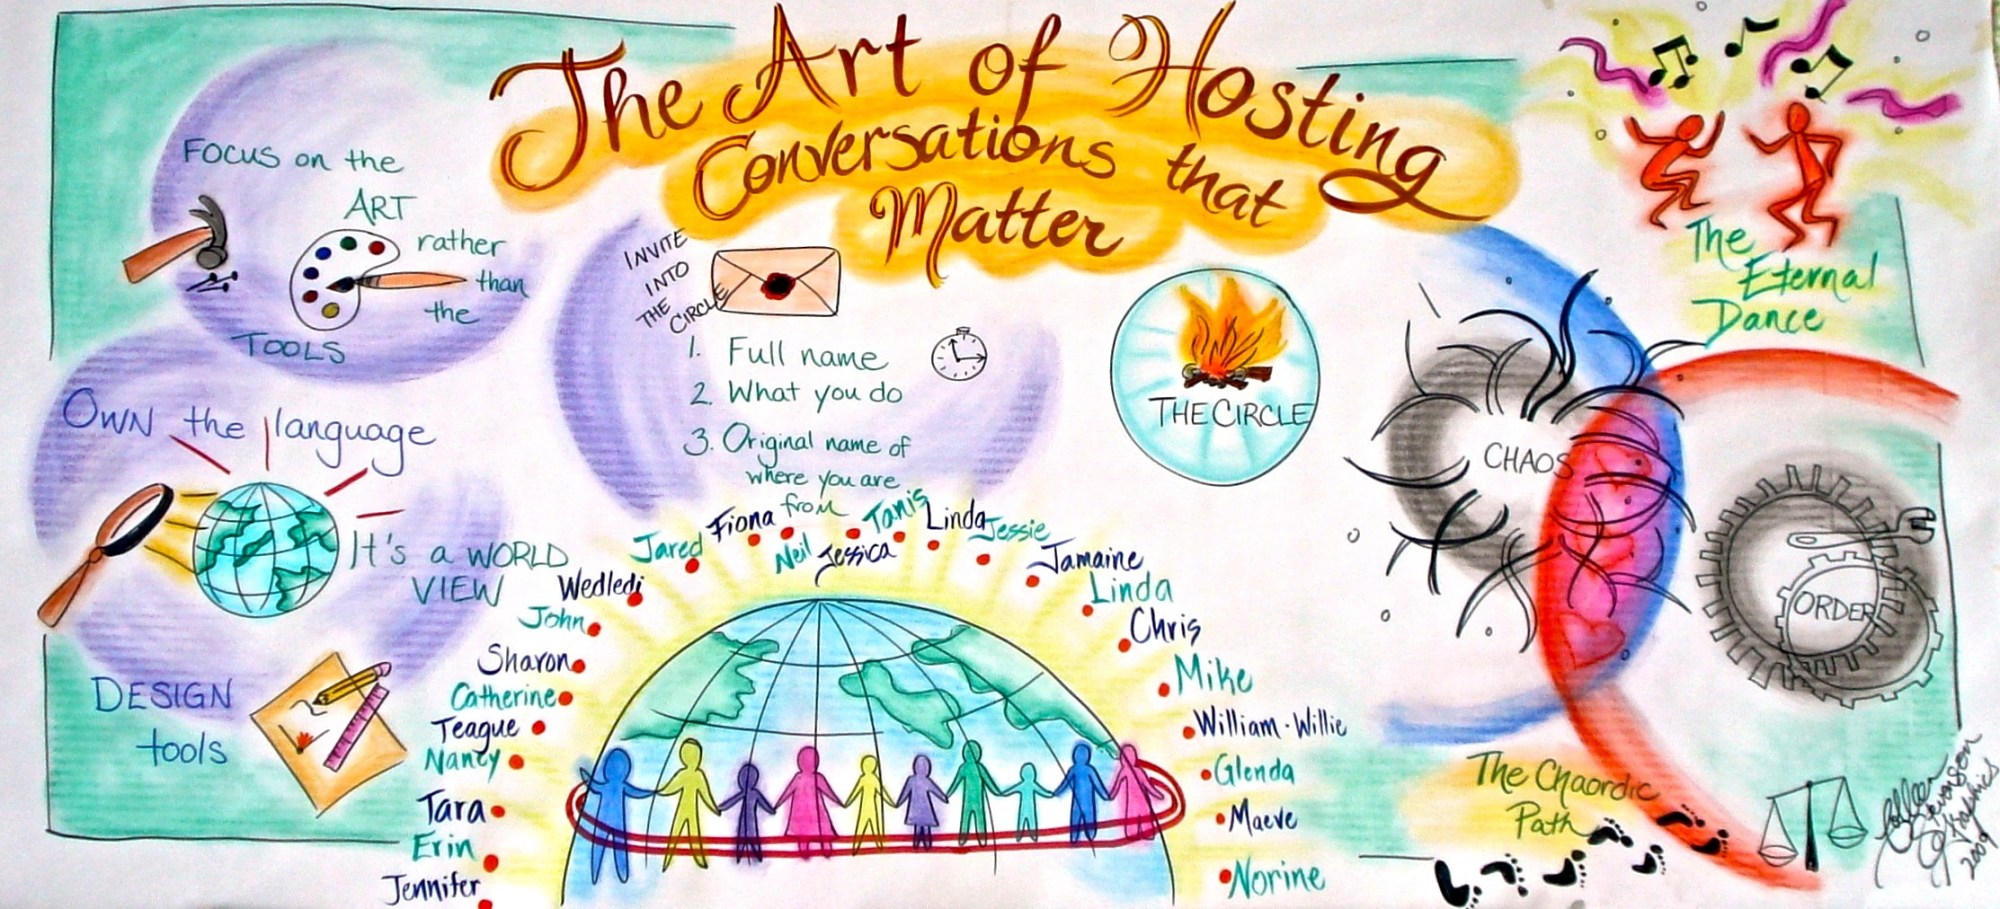 The Art of Hosting
Conversations that
Matter
Focus on the
ART
rather
than
the
TOOLS
OWN the language
It's a WORLD
VIEW
DESIGN
tools
INVITE
INTO
THE
CIRCLE
1. Full name
2. What you do
3. Original name of
where you are
from
THE CIRCLE
The
Eternal
Dance
CHAOS
ORDER
The Chaordic
Path
Jennifer
Erin
Tara
Nancy
Teague
Catherine
Sharon
John
Wedledi
Jared
Fiona
Neil
Jessica
Tanis
Linda
Jessie
Jamaine
Linda
Chris
Mike
William·Willie
Glenda
Maeve
Norine
Colleen
Stevenson
Graphics
2009